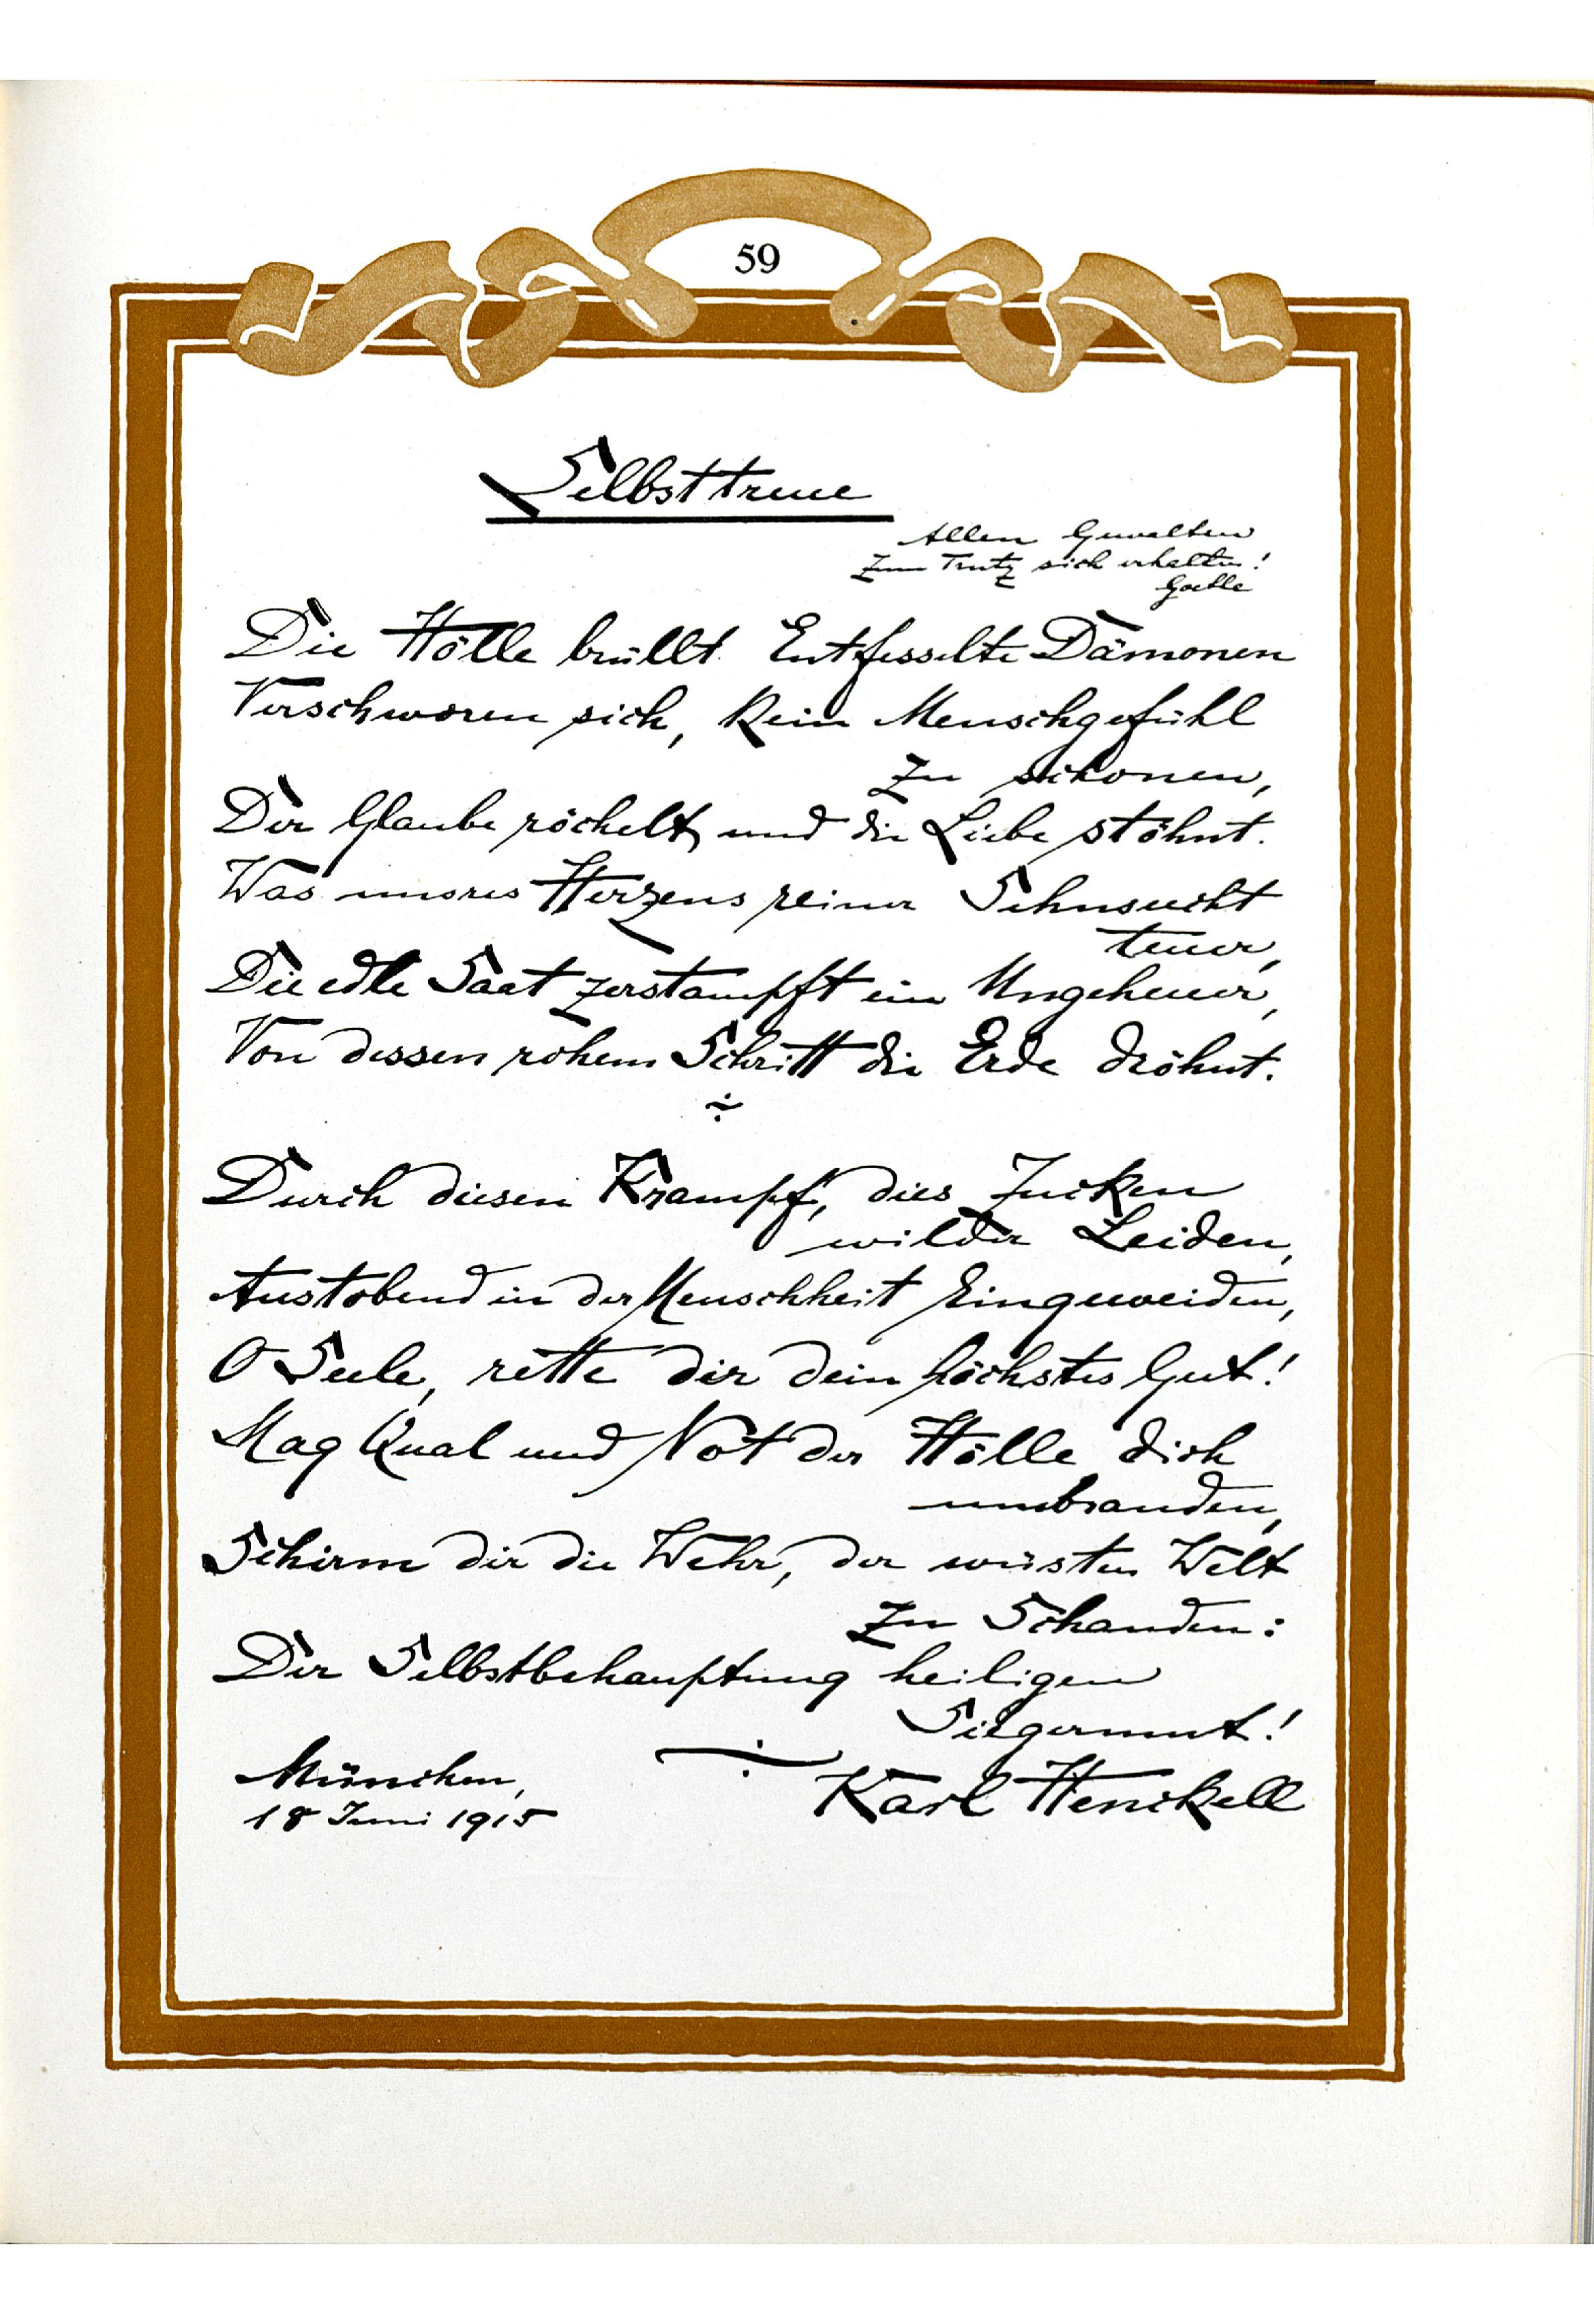 59
Selbsttreue
Allen Gewalten
Zum Trutz sich erhalten!
Goethe
Die Hölle brüllt. Entfesselte Dämonen
Verschworen sich, kein Menschgefühl
zu schonen,
Der Glaube röchelt, und die Liebe stöhnt.
Was unsres Herzens reiner Sehnsucht
teuer,
Die edle Saat zerstampft ein Ungeheuer,
Von dessen rohem Schritt die Erde dröhnt.
Durch diesen Krampf, dies Zucken
wilder Leiden,
Austobend in der Menschheit Eingeweiden,
O Seele, rette dir dein höchstes Gut!
Mag Qual und Not der Hölle dich
umbranden,
Schirm dir die Wehr, der wüsten Welt
zu Schanden:
Der Selbstbehauptung heiligen
Siegermut!
München,
18 Juni 1915
Karl Henckell